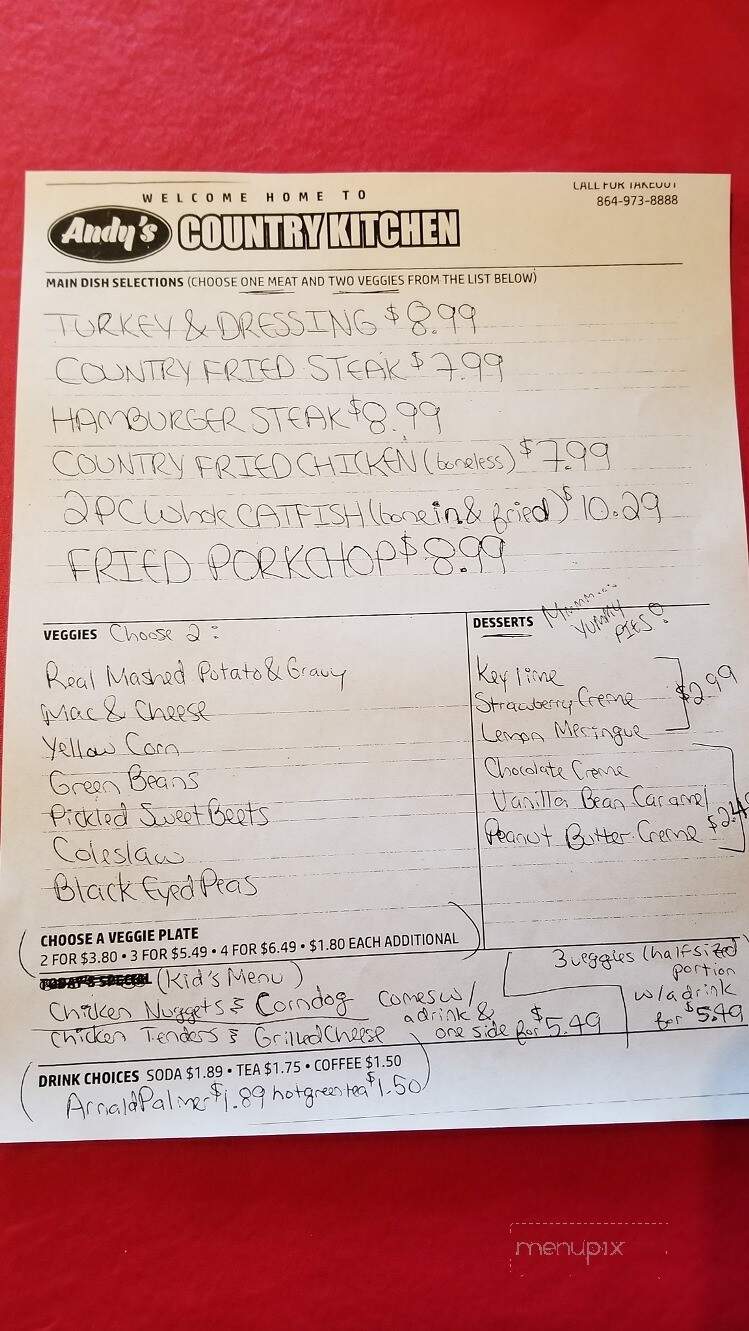 CALL FOR TAKEOUT
864-973-8888
WELCOME HOME TO
Andy's COUNTRY KITCHEN
MAIN DISH SELECTIONS (CHOOSE ONE MEAT AND TWO VEGGIES FROM THE LIST BELOW)
TURKEY & DRESSING $8.99
COUNTRY FRIED STEAK $7.99
HAMBURGER STEAK $8.99
COUNTRY FRIED CHICKEN (boneless) $7.99
2PC Whole CATFISH (bonein & fried) $10.29
FRIED PORKCHOP $8.99
VEGGIES Choose 2:
Real Mashed Potato & Gravy
Mac & Cheese
Yellow Corn
Green Beans
Pickled Sweet Beets
Coleslaw
Black Eyed Peas
DESSERTS Mmmm...
YUMMY
PIES!
Key lime
Strawberry Creme $2.99
Lemon Meringue
Chocolate Creme
Vanilla Bean Caramel
Peanut Butter Creme
CHOOSE A VEGGIE PLATE
2 FOR $3.80 • 3 FOR $5.49 • 4 FOR $6.49 • $1.80 EACH ADDITIONAL
TODAY'S SPECIAL (Kid's Menu)
Chicken Nuggets & Corndog
Chicken Tenders & Grilled Cheese
comes w/
a drink &
one side for $5.49
3 veggies (half sized
portion
w/a drink
for $5.49
DRINK CHOICES SODA $1.89 • TEA $1.75 • COFFEE $1.50
Arnald Palmer $1.89 hot green tea $1.50
menupix